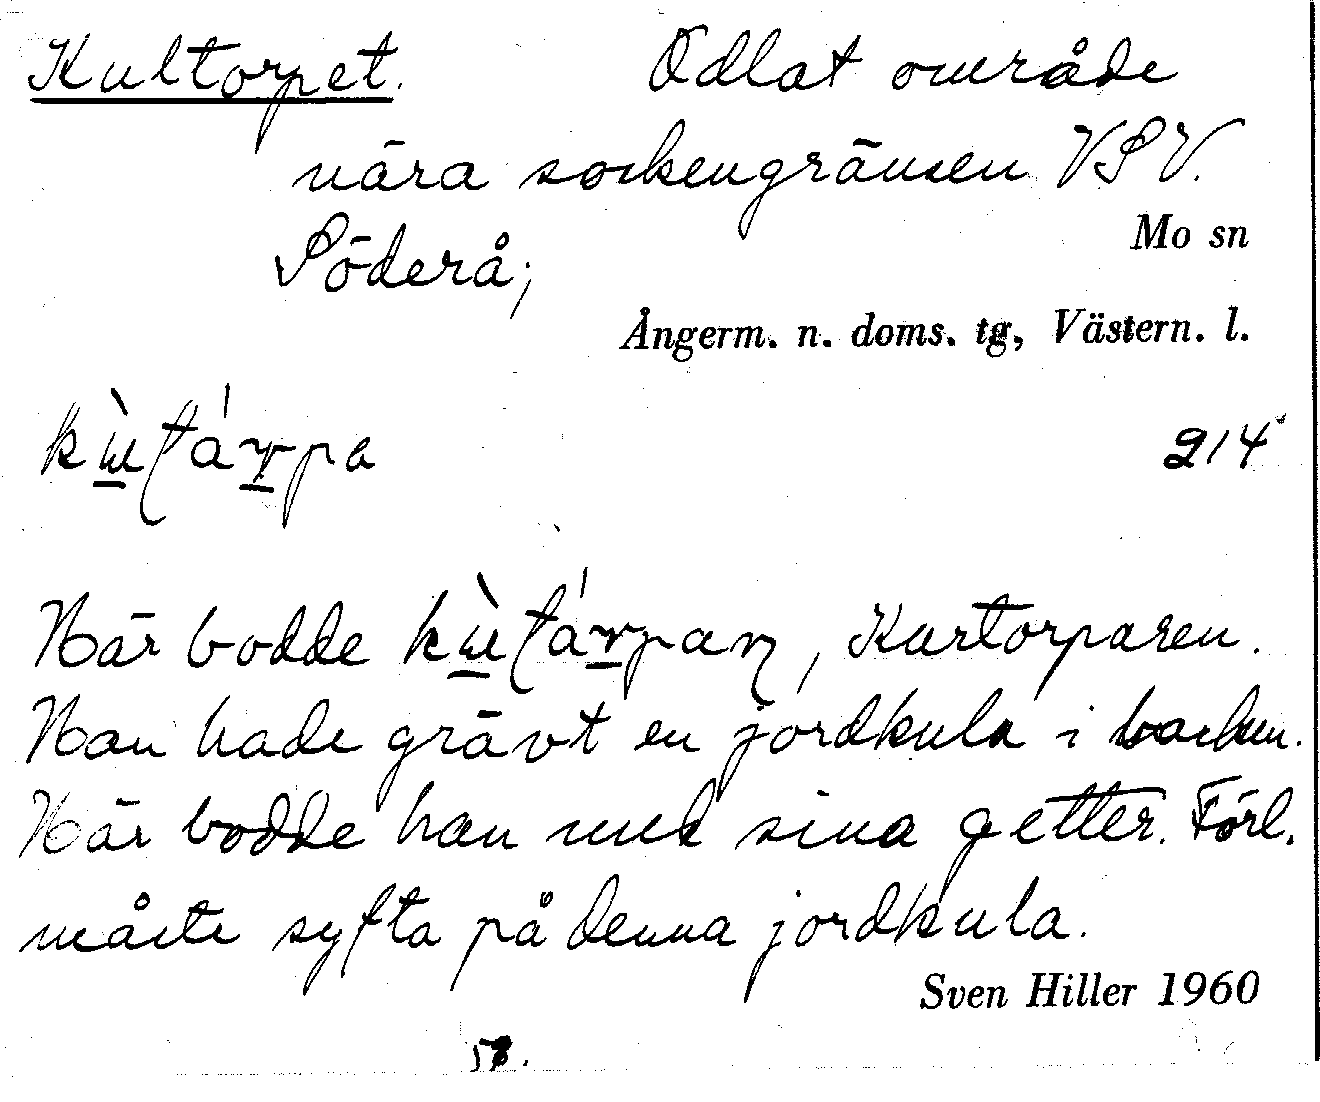 Kultorpet. Odlat område
nära sockengränsen VSV.
Mo sn
Söderå;
Ångerm. n. doms. tg, Västern. l.
214
Här bodde Kurtorparen.
Han hade grävt en jordkula i backen.
Här bodde han med sina getter. Förl.
måste syfta på denna jordkula.
Sven Hiller 1960